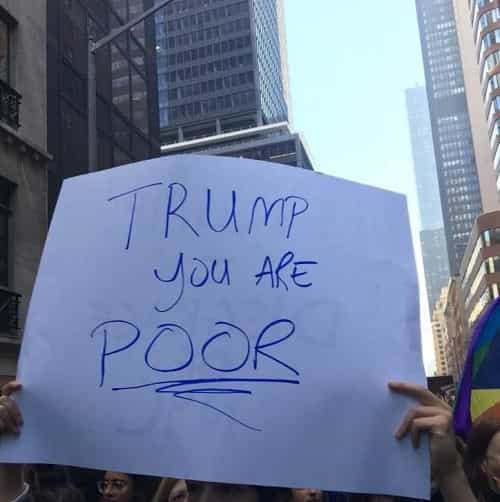 TRUMP
YOU ARE
POOR